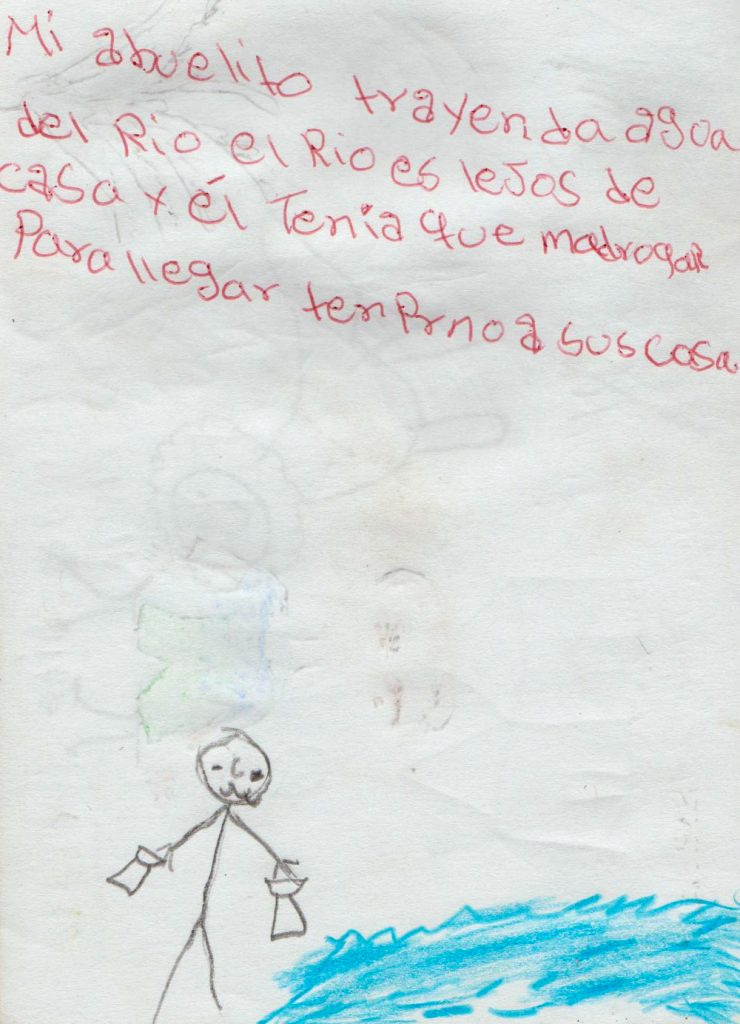 Mi abuelito trayenda agua
del Rio el Rio es lejos de
casa y él Tenia que madrogar
Para llegar tenPrno a sus cosa